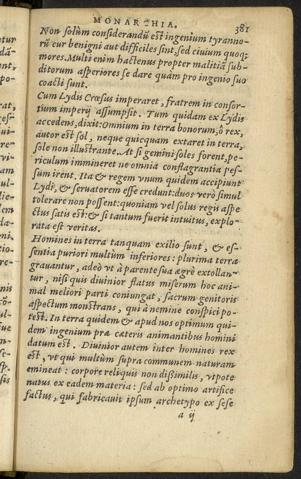 MONARCHIA. 381
Non solùm considerandũ est ingenium tyranno-
rũ eur benigni aut difficiles sint, sed ciuium quoq;
mores. Multi enim hactenus propter malitiã sub-
ditorum asperiores se dare quàm pro ingenio suo
coacti sunt.
Cum Lydis Crœsus imperaret, fratrem in consor-
tium imperij assumpsit. Tum quidam ex Lydis
accedens, dixit: Omnium in terra bonorum, ô rex,
autor est sol, neque quicquam extaret in terra,
sole non illustrante. At si gemini soles forent, pe-
riculum immineret ne omnia conflagrantia pes-
sum irent. Ita & regem vnum quidem accipiunt
Lydi, & seruatorem esse credunt: duos verò simul
tolerare non possent: quoniam vel solus regis aspe-
ctus satis est: & si tantum fuerit intuitus, explo-
rata est veritas.
Homines in terra tanquam exilio sunt, & es-
sentia puriori multùm inferiores: plurima terra
grauantur, adeò vt à parente sua ægrè extollan-
tur, nisi quis diuinior flatus miserum hoc ani-
mal meliori parti coniungat, sacrum genitoris
aspectum monstrans, qui à nemine conspici po-
test. In terra quidem & apud nos optimum qui-
dem ingenium præ cæteris animantibus homini
datum est. Diuinior autem inter homines rex
est, vt qui multùm supra communem naturam
emineat: corpore reliquis non dissimilis, vtpote
natus ex eadem materia: sed ab optimo artifice
factus, qui fabricauit ipsum archetypo ex sese
a ij